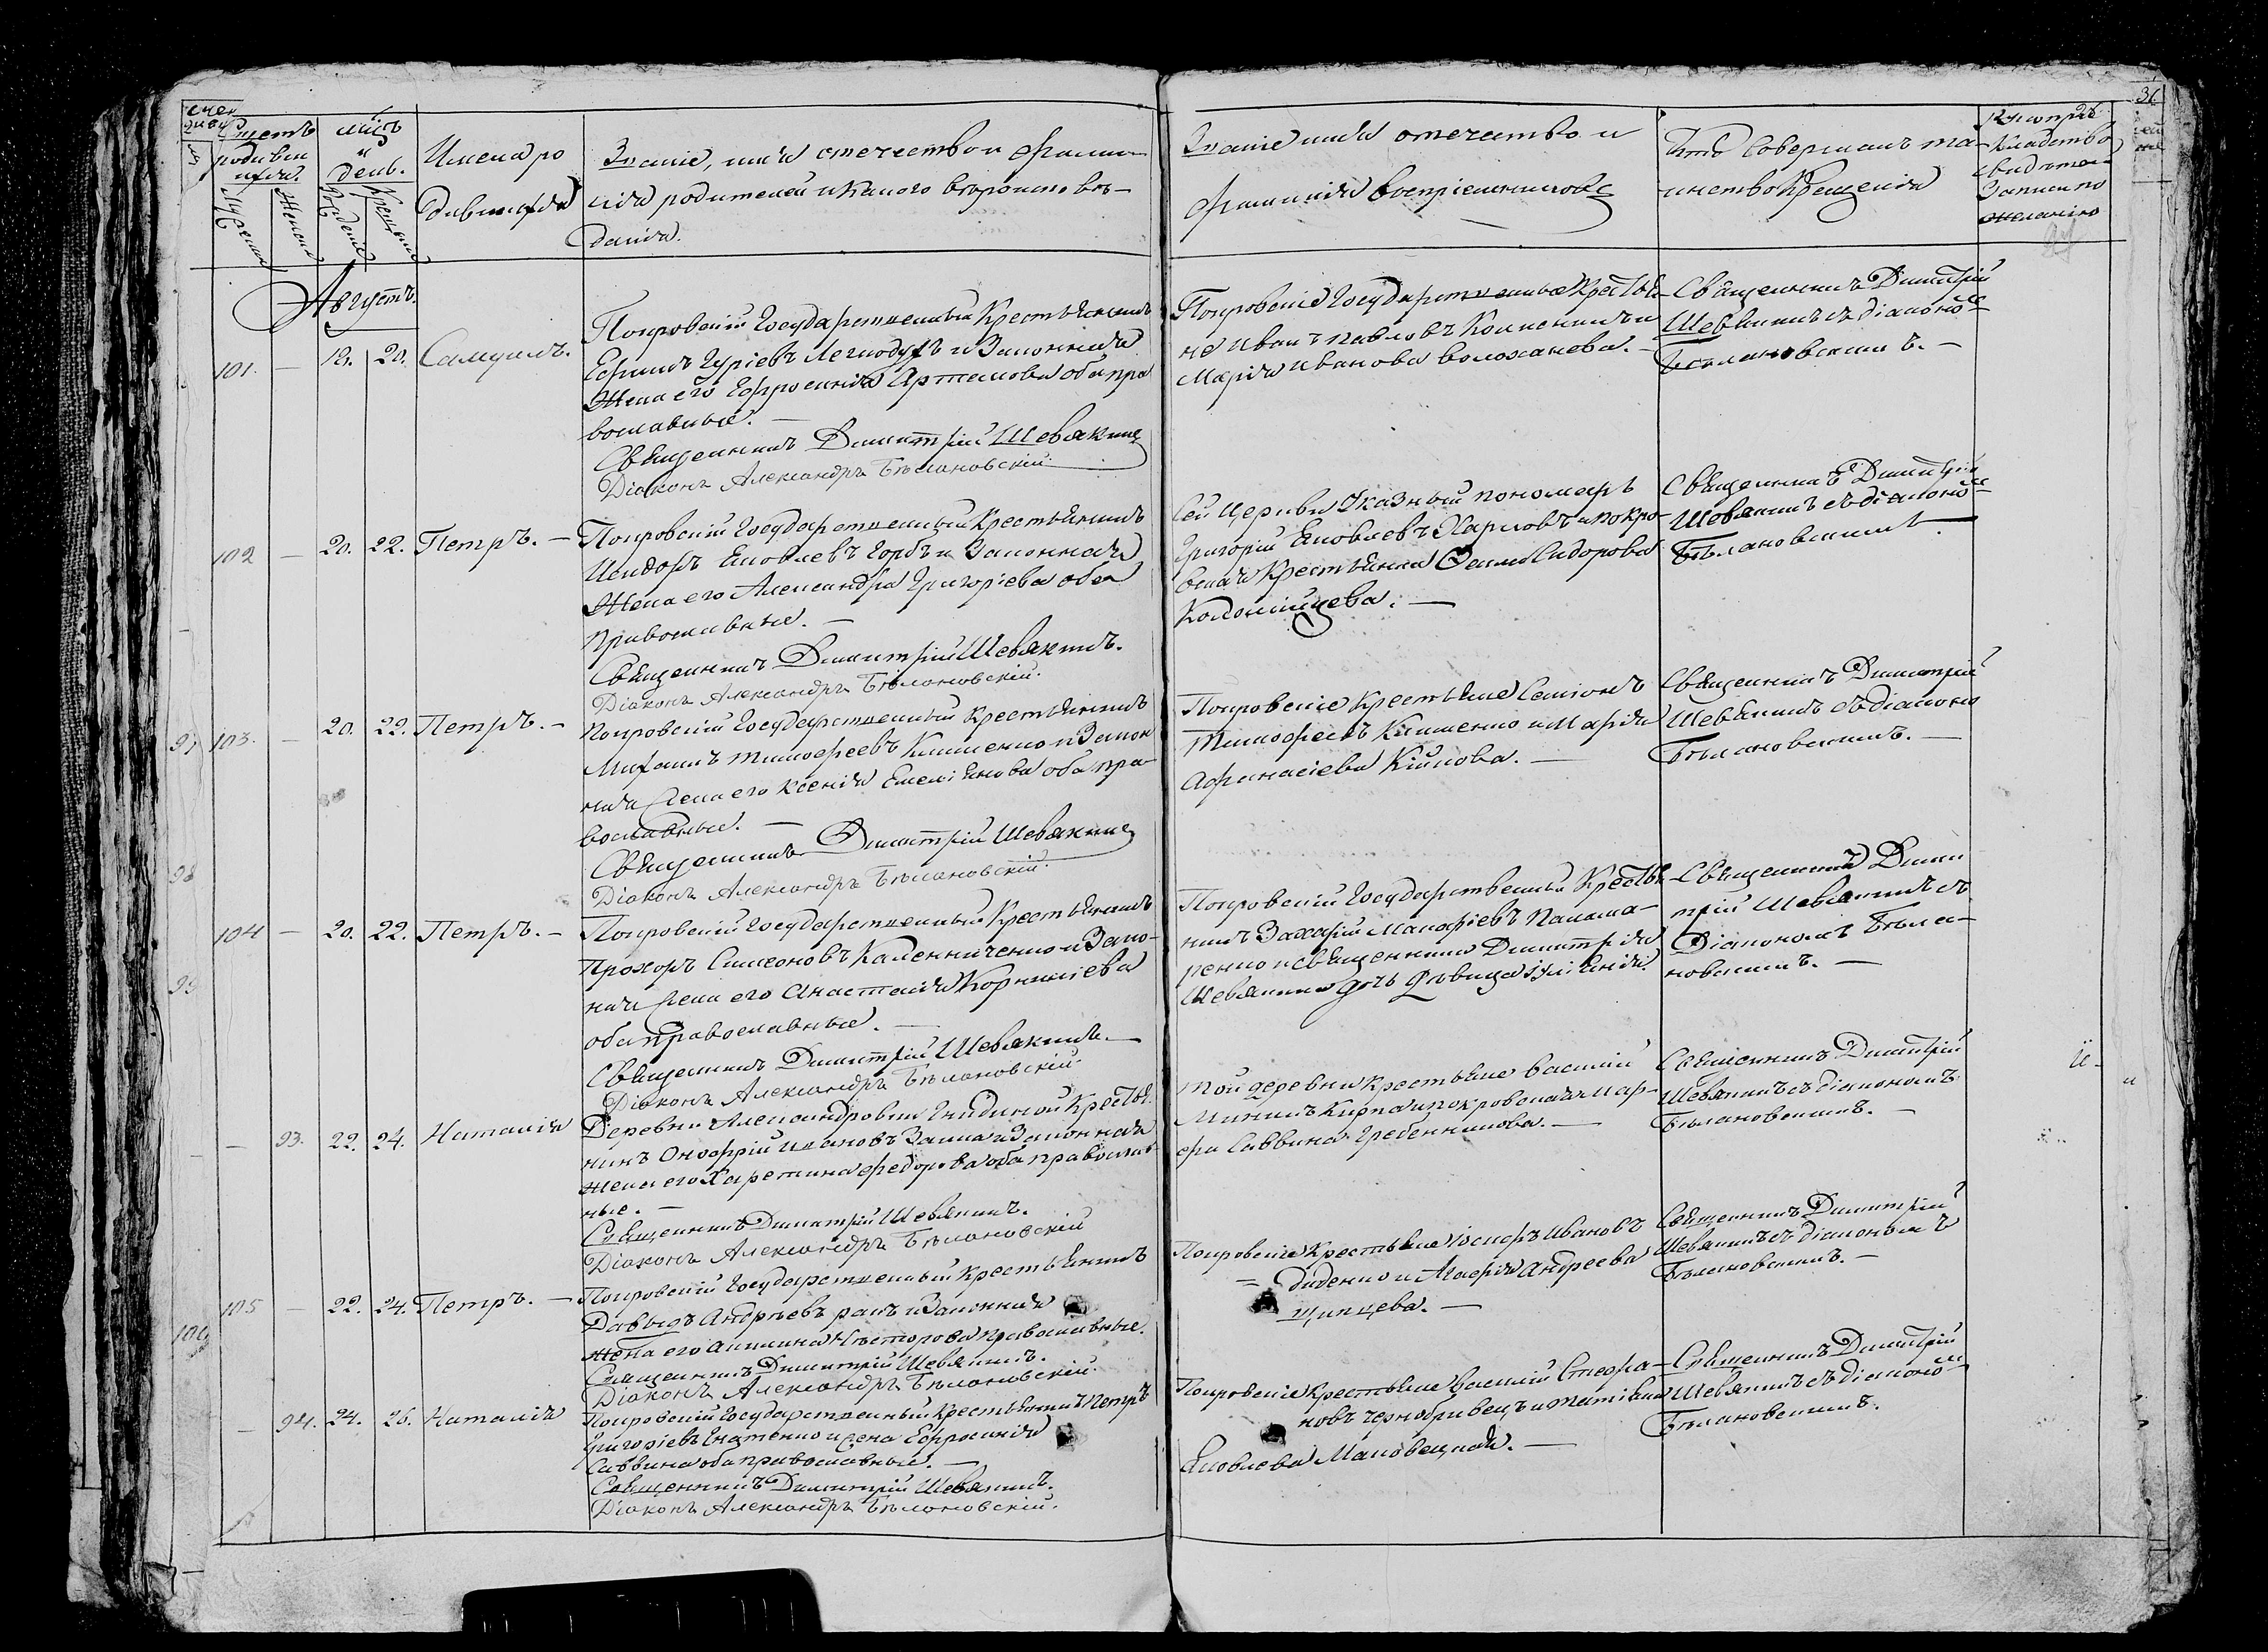 Счетъ
родившихся.
Мужеска
Женска
Мѣсяцъ
и
день.
Рожденія
Крещенія
Имена ро
дившихся
Званіе, имя отечество и фами-
лія родителей и какого вѣроисповѣ-
данія.
Званіе имя отечество и
фамилія воспріемниковъ
Кто совершалъ та-
инство крещенія
Рукоприк
ладство
свидѣтелей
записи по
желанію
Августъ.
101. — 18. 20. Самуилъ.
Покровскій Государственный Крестьянинъ
Ефимъ Гуріевъ Легкодухъ и Законная
Жена его Ефросинія Артемова оба пра
вославные. —
Священникъ Димитрій Шевякинъ
Діаконъ Александръ Бѣлановскій
Покровскіе Государственные Крестья-
не Иванъ Павловъ и
Марія Иванова Воложанева. —
Священникъ Димитрій
Шевякинъ съ діакономъ
Бѣлановскимъ. —
102 — 20. 22. Петръ. —
Покровскій Государственный Крестьянинъ
Исидоръ Яковлевъ Горбъ и Законная
Жена его Александра Григоріева оба
Православные. —
Священникъ Димитрій Шевякинъ.
Діаконъ Александръ Бѣлановскій.
Сей Церкви Указный пономарь
Григорій Яковлевъ Харловъ и покро-
вская Крестьянка Сидорова
Коломійцева. —
Священникъ Димитрій
Шевякинъ съ діакономъ
Бѣлановскимъ
103. — 20. 22. Петръ. —
Покровскій Государственный Крестьянинъ
Михаилъ Тимофеевъ Клименко и Закон
ная жена его Ксенія Емеліянова оба пра-
вославные. —
Священникъ Димитрій Шевякинъ
Діаконъ Александръ Бѣлановскій.
Покровскіе Крестьяне Семіонъ
Тимофеевъ Клименко и Марія
Афанасіева Кійкова. —
Священникъ Димитрій
Шевякинъ съ діакономъ
Бѣлановскимъ. —
104 — 20. 22. Петръ. —
Покровскій Государственный Крестьянинъ
Прохоръ Симеоновъ Каленниченко и Зако-
ная жена его Анастасія Корниліева
оба Православные. —
Священникъ Димитрій Шевякинъ —
Діаконъ Александръ Бѣлановскій
Покровскій Государственный Крестья-
нинъ Захарій Макаріевъ Палама-
ренко и священника Димитрія
Шевякина дочь дѣвица Іуліянія.
Священникъ Дими
трій Шевякинъ съ
Діакономъ Бѣла-
новскимъ. —
— 93. 22. 24. Наталія
Деревни Александровки Гнидиной Крестья
нинъ Онофрій Ивановъ Заика и Законная
жена его Харетина Федорова оба православ-
ные. —
Священникъ Димитрій Шевякинъ.
Діаконъ Александръ Бѣлановскій
Той деревни крестьяне Василій
Мининъ Кирпа и покровская Мар-
фа Саввина Гребенникова. —
Священникъ Димитрій
Шевякинъ съ діакономъ
Бѣлановскимъ. —
105 — 22. 24. Петръ. —
Покровскій Государственный Крестьянинъ
Давыдъ Андреевъ ракъ и Законная
жена его Акилина Несторова православные.
Священникъ Димитрій Шевякинъ.
Діаконъ Александръ Бѣлановскій.
Покровскіе Крестьяне Іосифъ Ивановъ
= Диденко и Агафія Андреева
Щипцева. —
Священникъ Димитрій
Шевякинъ съ діакономъ
Бѣлановскимъ. —
— 94. 24. 26. Наталія
Покровскій Государственный Крестьянинъ Петръ
Григоріевъ Игнатенко и жена Ефросинія
Саввина оба православные. —
Священникъ Димитрій Шевякинъ.
Діаконъ Александръ Бѣлановскій.
Покровскіе Крестьяне Василій Стефа-
новъ Чернобривецъ и Татіяна
Яковлева Маковецкая. —
Священникъ Димитрій
Шевякинъ съ діакономъ
Бѣлановскимъ.